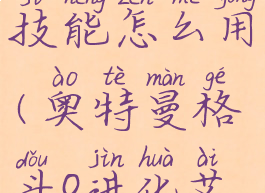 jì néng zěn me yòng
技能怎么用
ào tè màn gé
(奥特曼格
dǒu jìn huà ài
斗0进化艾